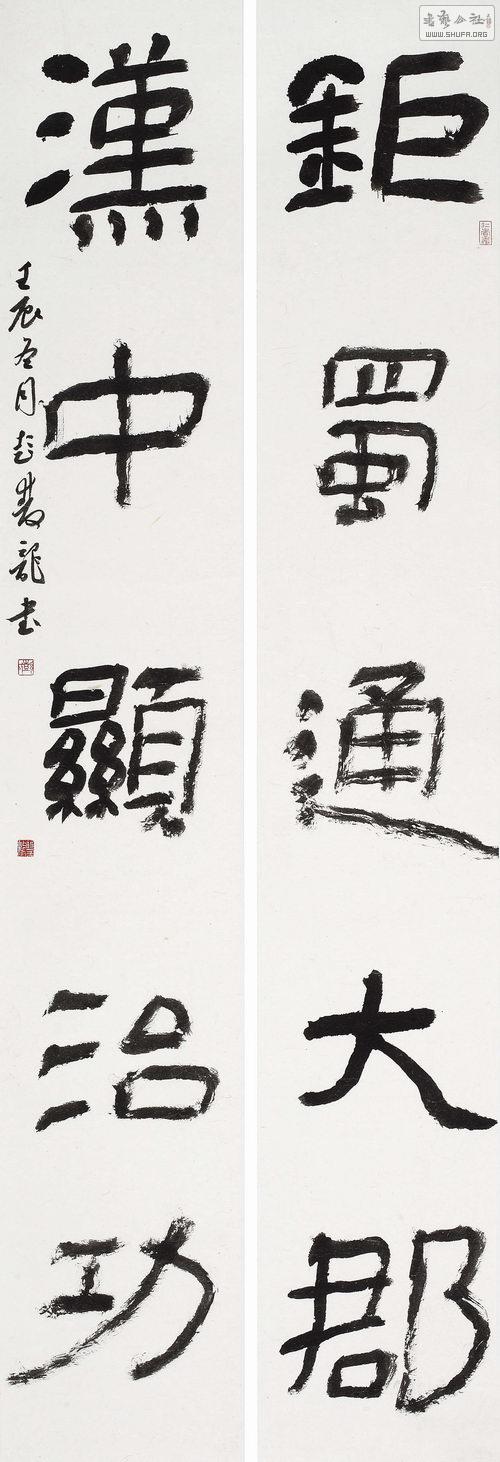 鉅蜀通大郡
漢中顯治功
壬辰冬月彭双龍书
WWW.SHUFA.ORG